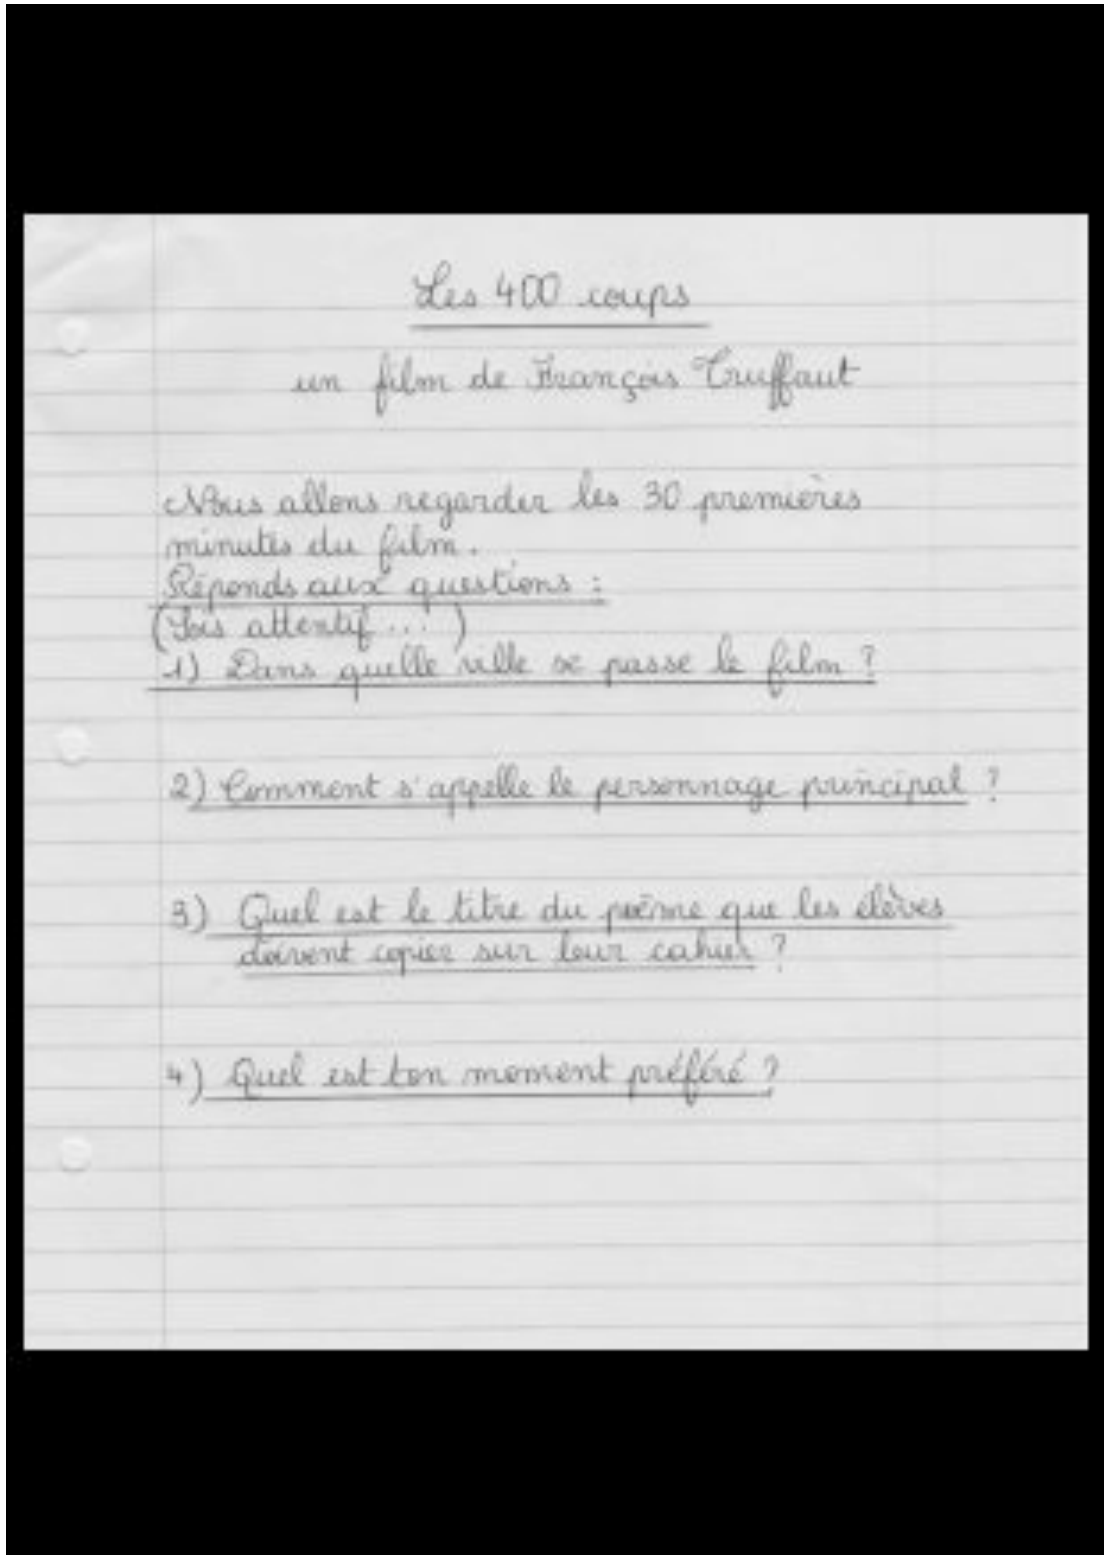 Les 400 coups
un film de François Truffaut
Nous allons regarder les 30 premières
minutes du film.
Réponds aux questions :
(Sois attentif... )
1) Dans quelle ville se passe le film ?
2) Comment s'appelle le personnage principal ?
3) Quel est le titre du poème que les élèves
doivent copier sur leur cahier ?
4) Quel est ton moment préféré ?